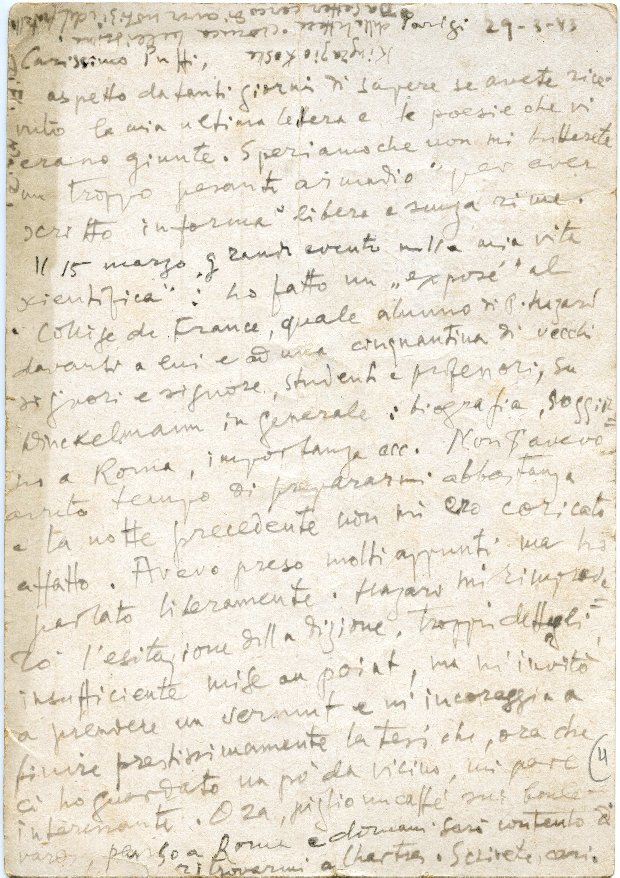 Parigi 29-3-43
Carissimo Putti,
aspetto da tanti giorni di sapere se avete rice-
vuto la mia ultima lettera e le poesie che vi
erano giunte. Speriamo che non mi butterete
un troppo pesante armadio "per aver
scritto in forma" libera e senza rime.
Il 15 marzo, grande evento nella mia vita
"scientifica": ho fatto un "exposé" al
Collège de France, quale alunno di P. Hazard
davanti a lui e ad una cinquantina di vecchi
signori e signore, studenti e professori, su
Winckelmann in generale: biografia, soggior-
no a Roma, importanza ecc. Non avevo
avuto tempo di prepararmi abbastanza
e la notte precedente non mi ero coricato
affatto. Avevo preso molti appunti ma ho
parlato liberamente. Hazard mi rimprove-
rò l'esitazione della dizione, troppi dettagli,
insufficiente mise au point, ma m'invitò
a prendere un vermut e m'incoraggia a
finire prestissimamente la tesi che, ora che
ci ho guardato un pò da vicino, mi pare
interessante. Ora, piglio un caffè sui boule-
vards, penso a Roma e domani sarò contento di
ritrovarmi a Chartres. Scrivete, cari.
11